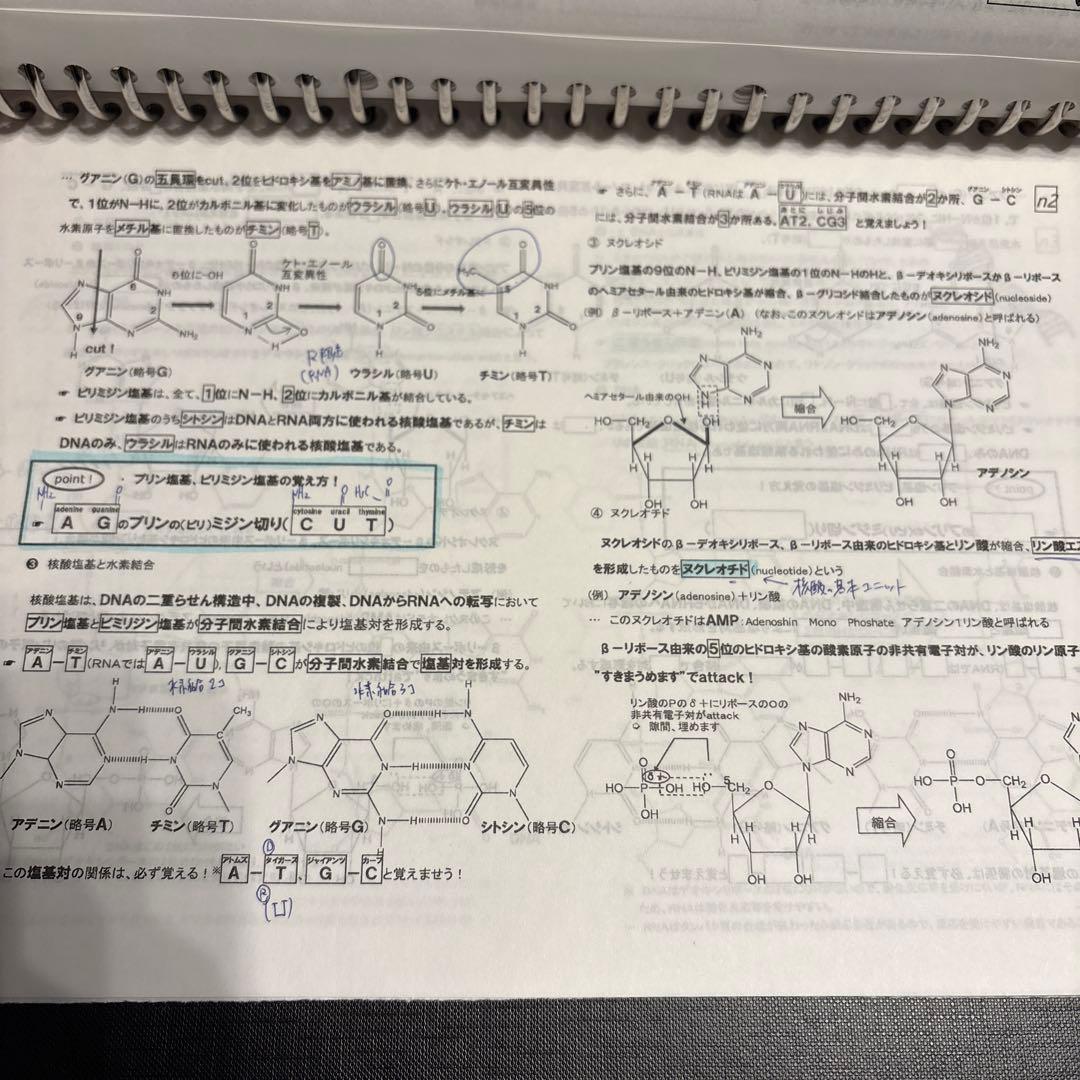 … グアニン(G)の五員環をcut、2位をヒドロキシ基をアミノ基に置換、さらにケト・エノール互変異性
で、1位がN−Hに、2位がカルボニル基に変化したものがウラシル(略号U)。ウラシル Uの5位の
水素原子をメチル基に置換したものがチミン(略号T)。
6位に−OH
ケト・エノール
互変異性
5位にメチル基
cut！
グアニン(略号G)
ウラシル(略号U)
チミン(略号T)
(RNA)
☛ ピリミジン塩基は、全て、1位にN−H、2位にカルボニル基が結合している。
☛ ピリミジン塩基のうちシトシンはDNAとRNA両方に使われる核酸塩基であるが、チミンは
DNAのみ、ウラシルはRNAのみに使われる核酸塩基である。
point！ ・ プリン塩基、ピリミジン塩基の覚え方！
NH₂ O NH₂ O H₃C O
adenine guanine cytosine uracil thymine
☛ A Gのプリンの(ピリ)ミジン切り(C U T)
❸ 核酸塩基と水素結合
核酸塩基は、DNAの二重らせん構造中、DNAの複製、DNAからRNAへの転写において
プリン塩基とピミリジン塩基が分子間水素結合により塩基対を形成する。
アデニン チミン アデニン ウラシル グアニン シトシン
☛ A−T(RNAではA−U)、G−Cが分子間水素結合で塩基対を形成する。
水素結合2コ
水素結合3コ
アデニン(略号A)
チミン(略号T)
グアニン(略号G)
シトシン(略号C)
アトムズ タイガース ジャイアンツ カープ
この塩基対の関係は、必ず覚える！※A−T、G−Cと覚えませう！
D
R
(U)
n2
アデニン チミン アデニン ウラシル グアニン シトシン
☛ さらに、A−T(RNAはA−U)には、分子間水素結合が2か所、G−C
には、分子間水素結合が3か所ある。AT2、CG3 と覚えましょう！
③ ヌクレオシド
プリン塩基の9位のN−H、ピリミジン塩基の1位のN−HのHと、β−デオキシリボースかβ−リボース
のヘミアセタール由来のヒドロキシ基が縮合、β−グリコシド結合したものがヌクレオシド(nucleoside)
(例) β−リボース＋アデニン(A) (なお、このヌクレオシドはアデノシン(adenosine)と呼ばれる)
ヘミアセタール由来のOH
縮合
アデノシン
④ ヌクレオチド
ヌクレオシドのβ−デオキシリボース、β−リボース由来のヒドロキシ基とリン酸が縮合、リン酸エ
を形成したものをヌクレオチド(nucleotide)という
核酸の基本ユニット
(例) アデノシン(adenosine)＋リン酸
… このヌクレオチドはAMP：Adenoshin Mono Phoshate アデノシン1リン酸と呼ばれる
β−リボース由来の5位のヒドロキシ基の酸素原子の非共有電子対が、リン酸のリン原子
“すきまうめます”でattack！
リン酸のPのδ＋にリボースのOの
非共有電子対がattack
隙間、埋めます
縮合